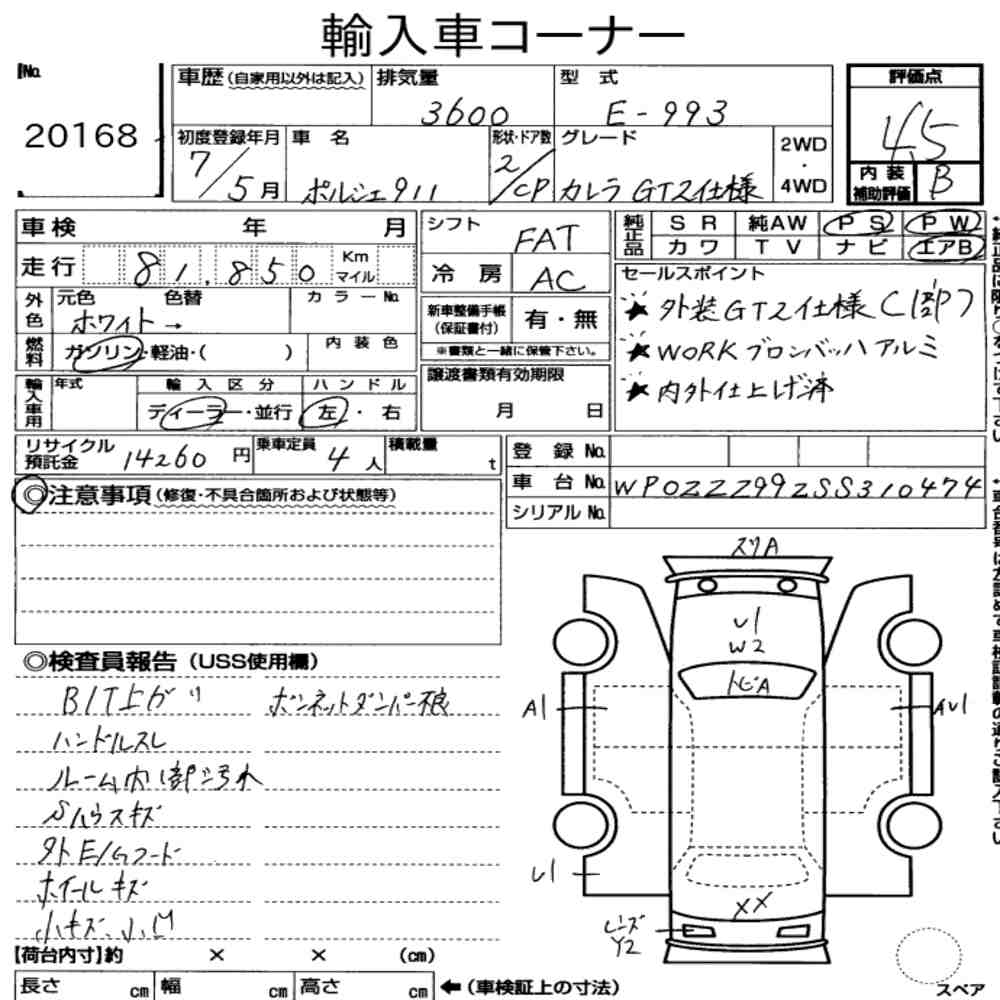 輸入車コーナー
No.
20168
車歴 (自家用以外は記入)
排気量
3600
型式
E-993
評価点
4.5
初度登録年月
7/5月
車名
ポルシェ911
形状・ドア数
2/CP
グレード
カレラ GT2仕様
2WD
・
4WD
内装
補助評価
B
車検 年 月
シフト
FAT
純正品
SR 純AW PS PW
カワ TV ナビ エアB
走行
81,850
Km
マイル
冷房
AC
セールスポイント
★ 外装GT2仕様
★ WORK ブロンバッハ アルミ
★ 内外仕上げ済
外色
元色 色替 カラーNo.
ホワイト→
新車整備手帳
(保証書付)
有・無
※書類と一緒に保管下さい。
燃料
ガソリン・軽油・( )
内装色
輸入車用
年式
輸入区分
ハンドル
ディーラー・並行
左・右
譲渡書類有効期限
月 日
リサイクル
預託金
14260 円
乗車定員
4 人
積載量
t
登録No.
車台No.
WP0ZZZ99ZSS310474
シリアルNo.
◎注意事項 (修復・不具合箇所および状態等)
◎検査員報告 (USS使用欄)
ボンネットダンパー狼
ハンドルスレ
ルーム内部汚れ
外E/Gフード
ホイールキズ
小キズ、小凹
スリA
U1
W2
トビA
A1
AU1
U1
XX
レンズ
Y2
【荷台内寸】約 × × (cm)
長さ cm 幅 cm 高さ cm
←(車検証上の寸法)
スペア